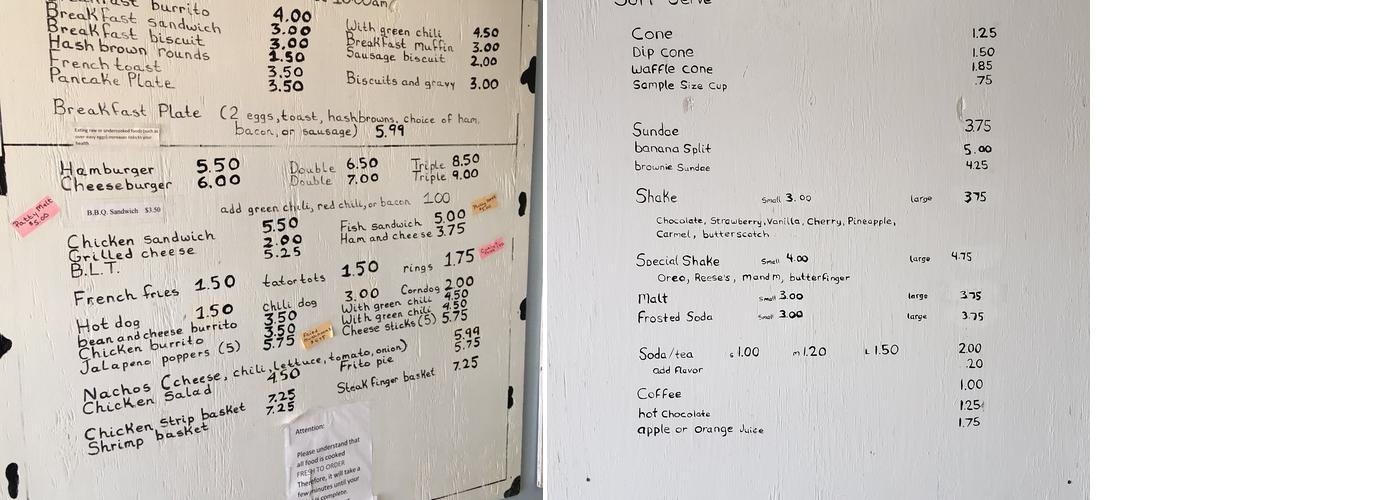 burrito 4.00
Breakfast sandwich 3.00 With green chili 4.50
Breakfast biscuit 3.00 Breakfast muffin 3.00
Hash brown rounds 1.50 Sausage biscuit 2.00
French toast 3.50
Pancake Plate 3.50 Biscuits and gravy 3.00
Breakfast Plate (2 eggs, toast, hashbrowns, choice of ham,
bacon, or sausage) 5.99
Eating raw or undercooked foods (such as
over easy eggs) increases risks to your
health
Hamburger 5.50 Double 6.50 Triple 8.50
Cheeseburger 6.00 Double 7.00 Triple 9.00
Patty Melt
$5.00
B.B.Q. Sandwich $3.50
add green chili, red chili, or bacon 1.00
Chicken sandwich 5.50 Fish sandwich 5.00
Grilled cheese 2.00 Ham and cheese 3.75
B.L.T. 5.25
French fries 1.50 tator tots 1.50 rings 1.75
Hot dog 1.50 chili dog 3.00 Corndog 2.00
bean and cheese burrito 3.50 With green chili 4.50
Chicken burrito 3.50 With green chili 4.50
Jalapeno poppers (5) 5.75 Cheese sticks (5) 5.75
Nachos (cheese, chili, lettuce, tomato, onion) 5.99
Chicken Salad 4.50 Frito pie 5.75
Chicken Strip basket 7.25 Steak finger basket 7.25
Shrimp basket 7.25
Attention:
Please understand that
all food is cooked
FRESH TO ORDER
Therefore, it will take a
few minutes until your
is complete.
Soft Serve
Cone 1.25
Dip Cone 1.50
Waffle Cone 1.85
Sample Size Cup .75
Sundae 3.75
banana Split 5.00
brownie Sundae 4.25
Shake Small 3.00 large 3.75
Chocolate, Strawberry, Vanilla, Cherry, Pineapple,
Carmel, butterscotch
Special Shake Small 4.00 large 4.75
Oreo, Reese's, m and m, butterfinger
Malt Small 3.00 large 3.75
Frosted Soda Small 3.00 large 3.75
Soda/tea s 1.00 m 1.20 L 1.50 2.00
add flavor .20
Coffee 1.00
hot Chocolate 1.25
apple or Orange Juice 1.75